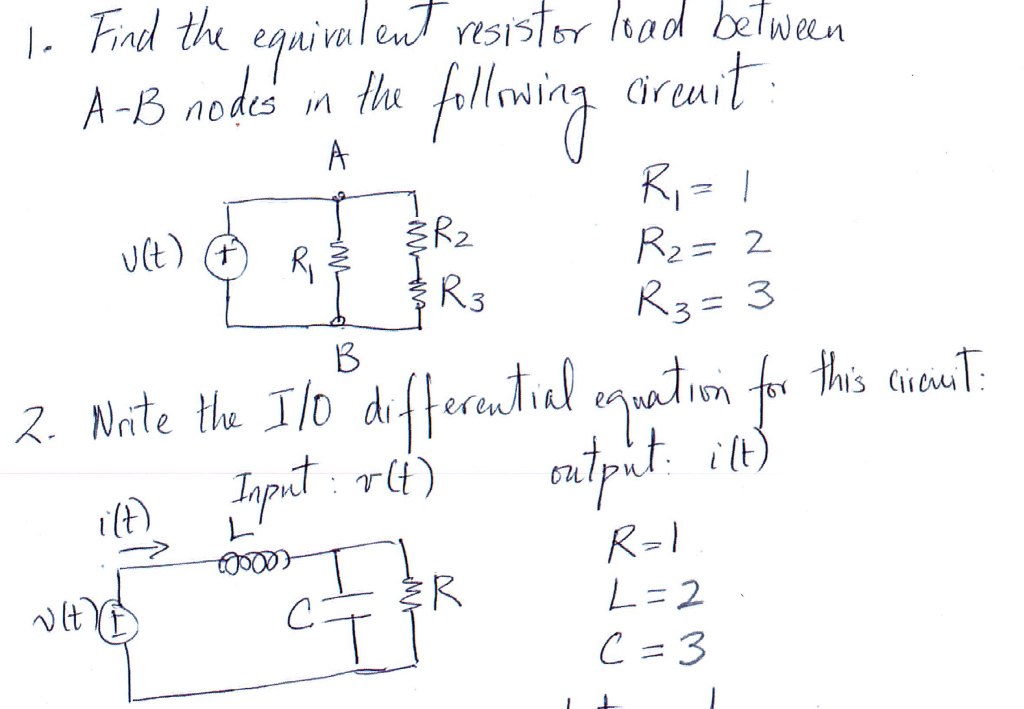 1. Find the equivalent resistor load between
A-B nodes in the following circuit:
A
R₁ = 1
v(t) + R₁ R₂
R₂ = 2
R₃
R₃ = 3
B
2. Write the I/O differential equation for this circuit:
Input: v(t) output: i(t)
i(t) L
R=1
v(t) + C R
L=2
C=3